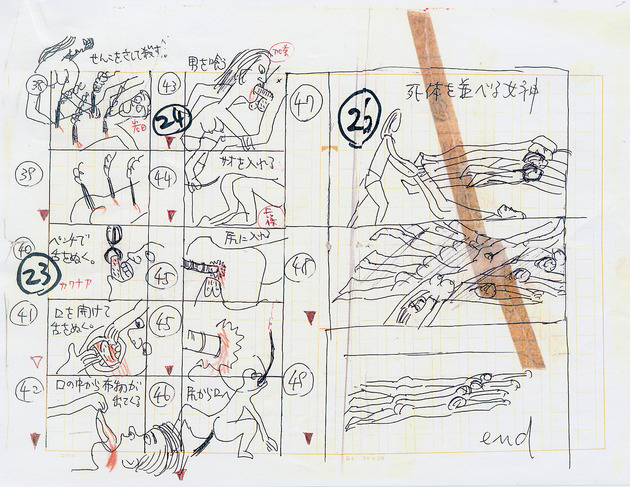 38
せんこをさして殺す!!
39
40
ペンチで
舌をぬく。
カワナア
23
41
口を開けて
舌をぬく。
42
口の中から布物が
出てくる
43
男を喰う
24
44
サオを入れる
45
尻に入れ
45
46
尻から口へ
47
死体を並べる女神
48
49
end